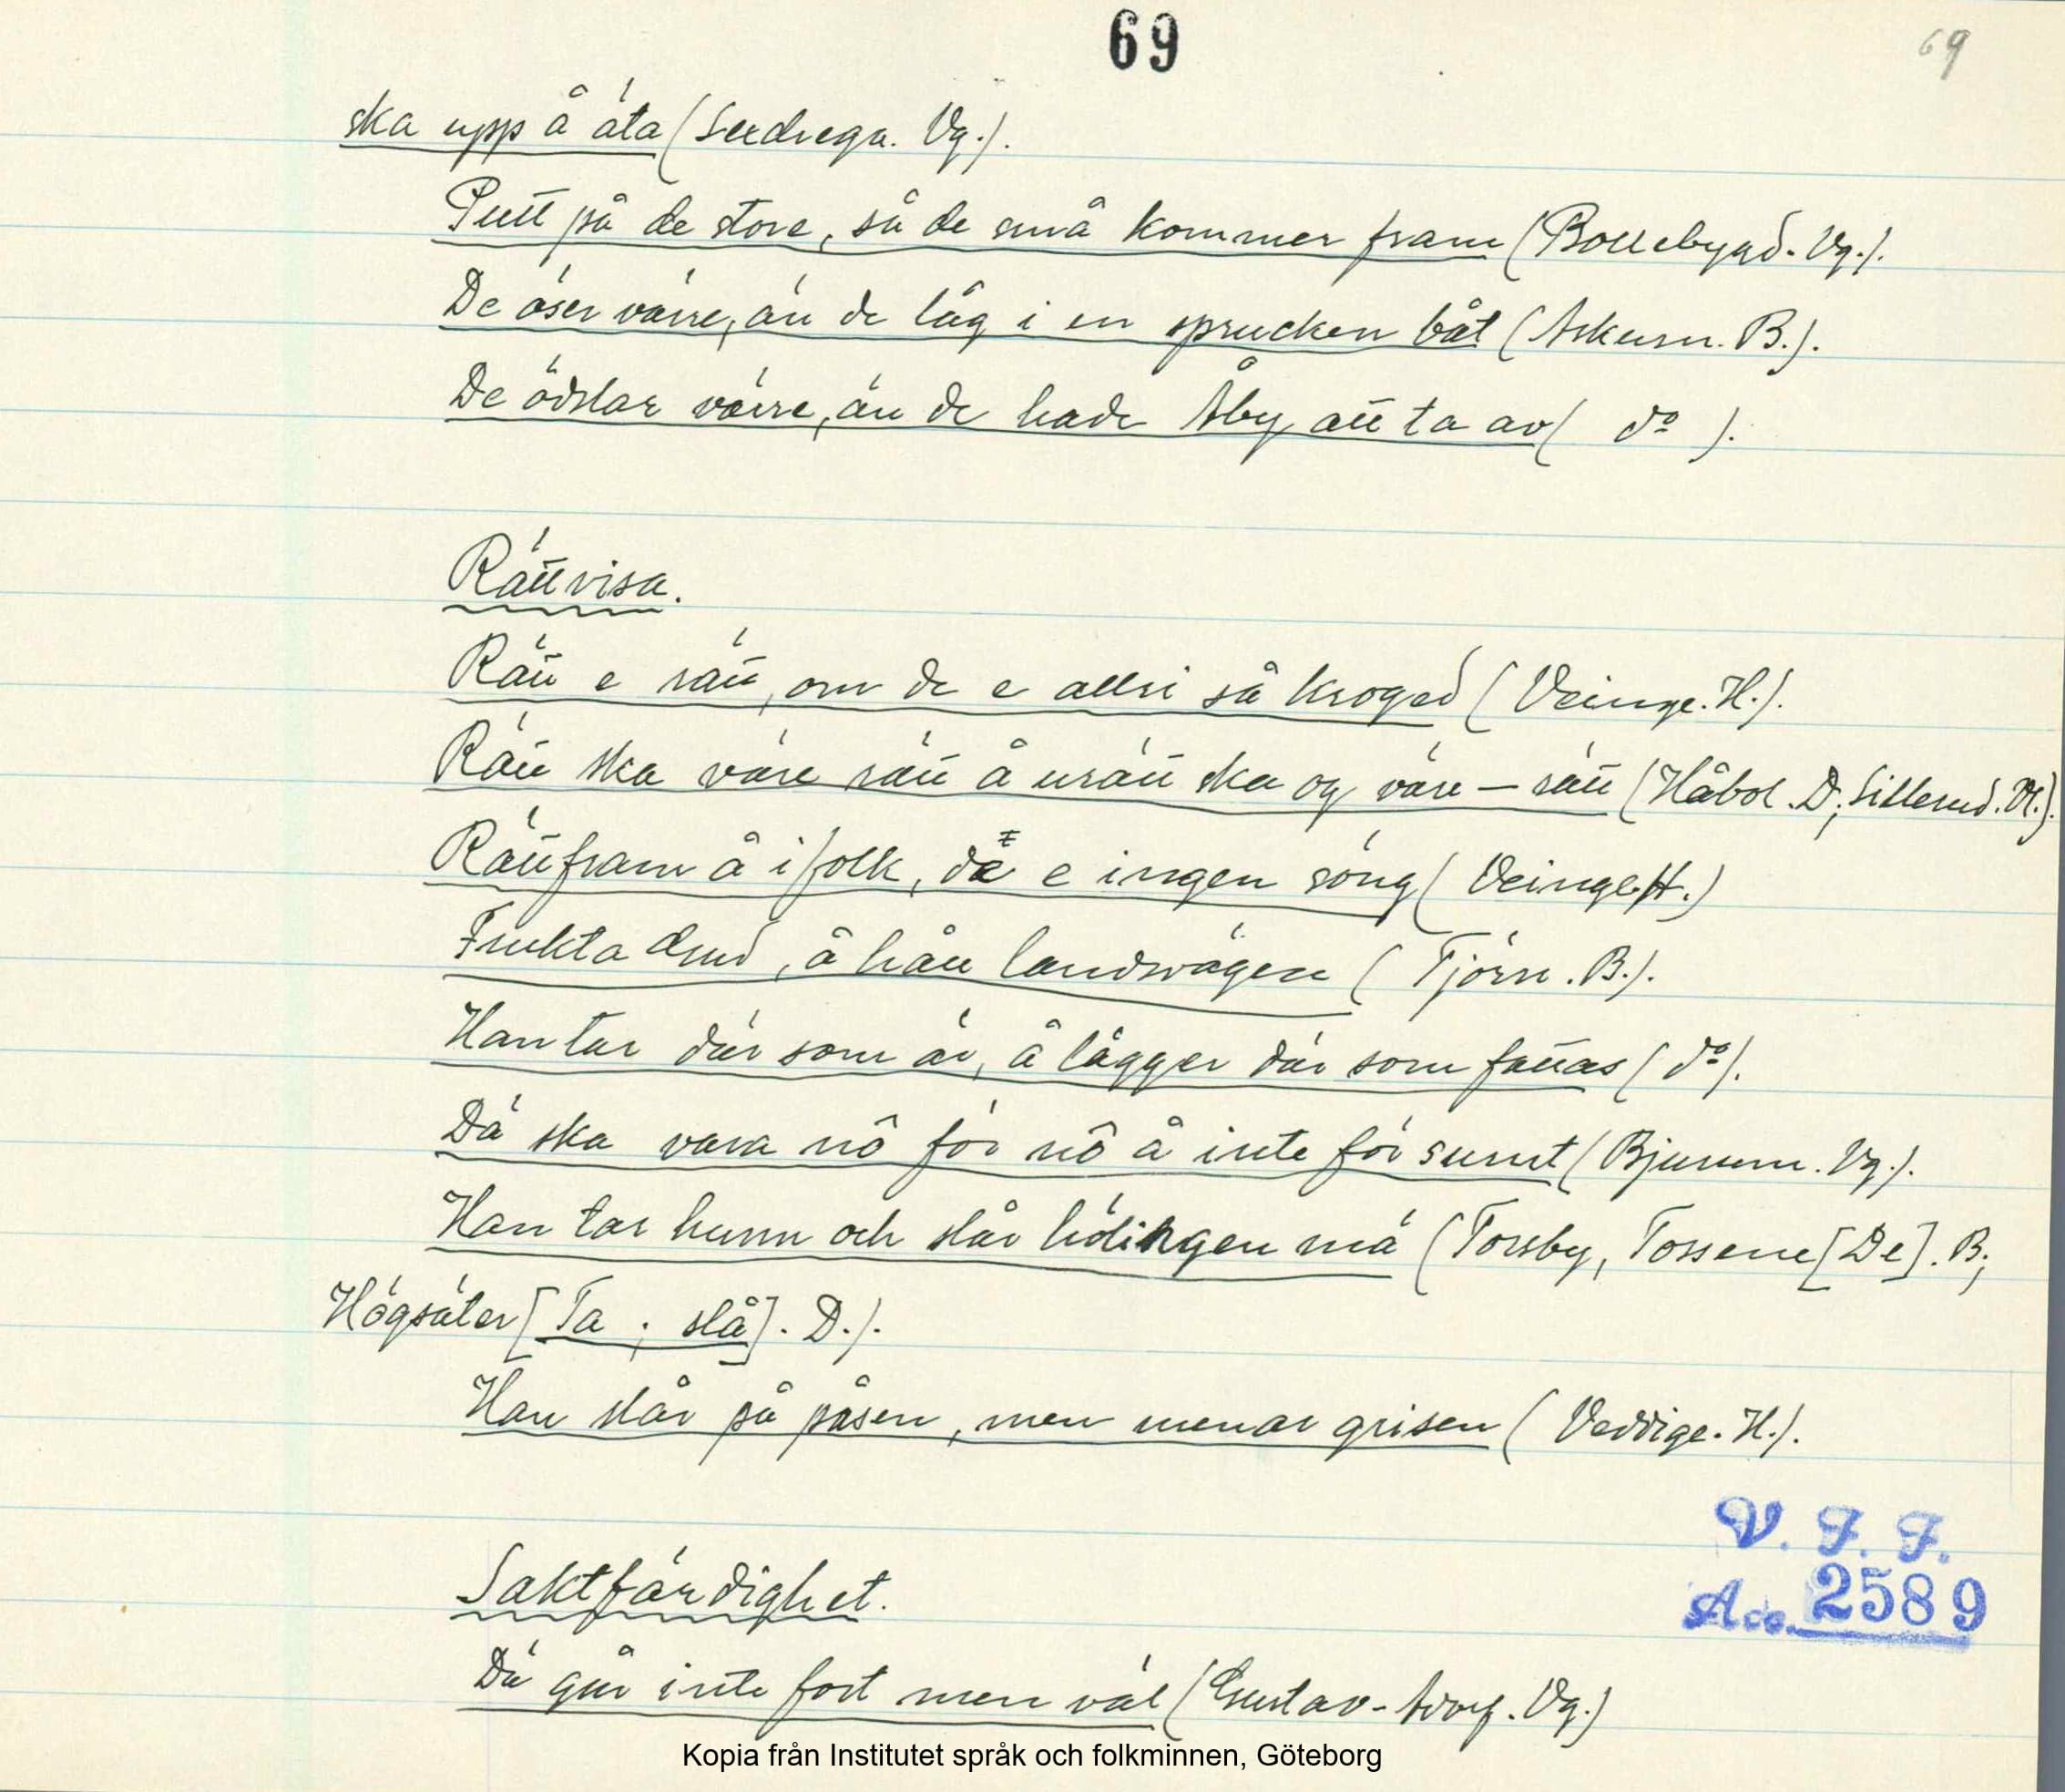 69
69
ska upp å äta (Sexdrega. Vg.).
Putt på de store, så de små kommer fram (Bollebygd. Vg.).
De öser värre, än de låg i en sprucken båt (Askum. B.).
De ödslar värre, än de hade Åby att ta av ( do ).
Rättvisa.
Rätt e rätt, om de e allri så kroged (Veinge. H.).
Rätt ska väre rätt å urätt ska og väre – rätt (Håbol. D; Sillerud. Vl.).
Rättfram å i folk, dä e ingen söng (Veinge. H.)
Frukta Gud, å håll landsvägen (Tjörn. B.).
Han tar där som är, å lägger där som fattas (do).
Dä ska vara nô för nô å inte för sumt (Bjurum. Vg.).
Han tar hunn och slår hödingen mä (Torsby, Tossene [De]. B;
Högsäter [Ta ; slå]. D.).
Han slår på påsen, men menar grisen (Veddige. H.).
Saktfärdighet.
Dä går inte fort men väl (Gustav-Adolf. Vg.)
V. F. F.
Acc. 2589
Kopia från Institutet språk och folkminnen, Göteborg